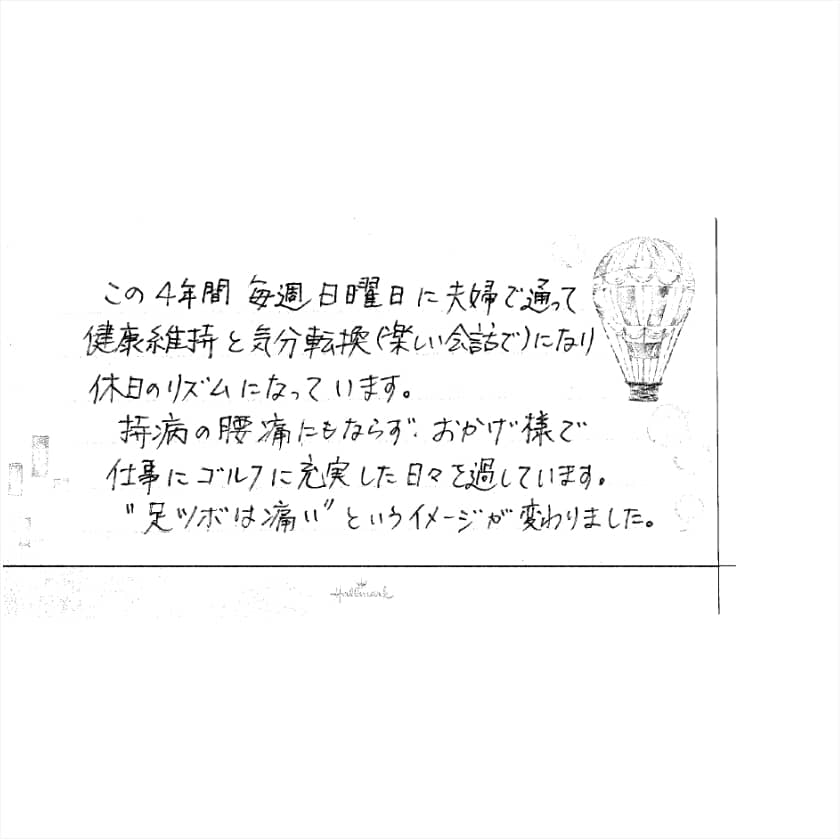 この4年間 毎週日曜日に夫婦で通って
健康維持と気分転換(楽しい会話で)になり
休日のリズムになっています。
持病の腰痛にもならず、おかげ様で
仕事にゴルフに充実した日々を過しています。
"足ツボは痛い"というイメージが変わりました。
Hallmark